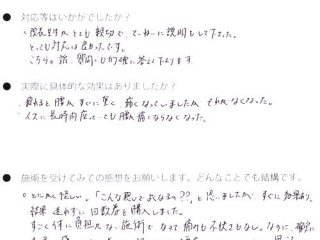 ● 対応等はいかがでしたか？
・院長先生がとても親切で、ていねいに説明もして下さった。
とっても対応は良かったです。
こちらの話、質問にも的確に答えて下さります
● 実際に具体的な効果はありましたか？
・疲れると腰がすぐに重く、痛くなっていましたが それがなくなった。
・イスに長時間座っていても腰が痛くならなくなった。
● 施術を受けてみての感想をお願いします。どんなことでも結構です。
・とにかく優しい。「こんな感じで良くなるの？？」と思いましたが すぐに効果あり、
結果 迷わずに回数券を購入しました。
すごく体に負担がない施術で、なって痛みも不快さもない。なのに、確実に